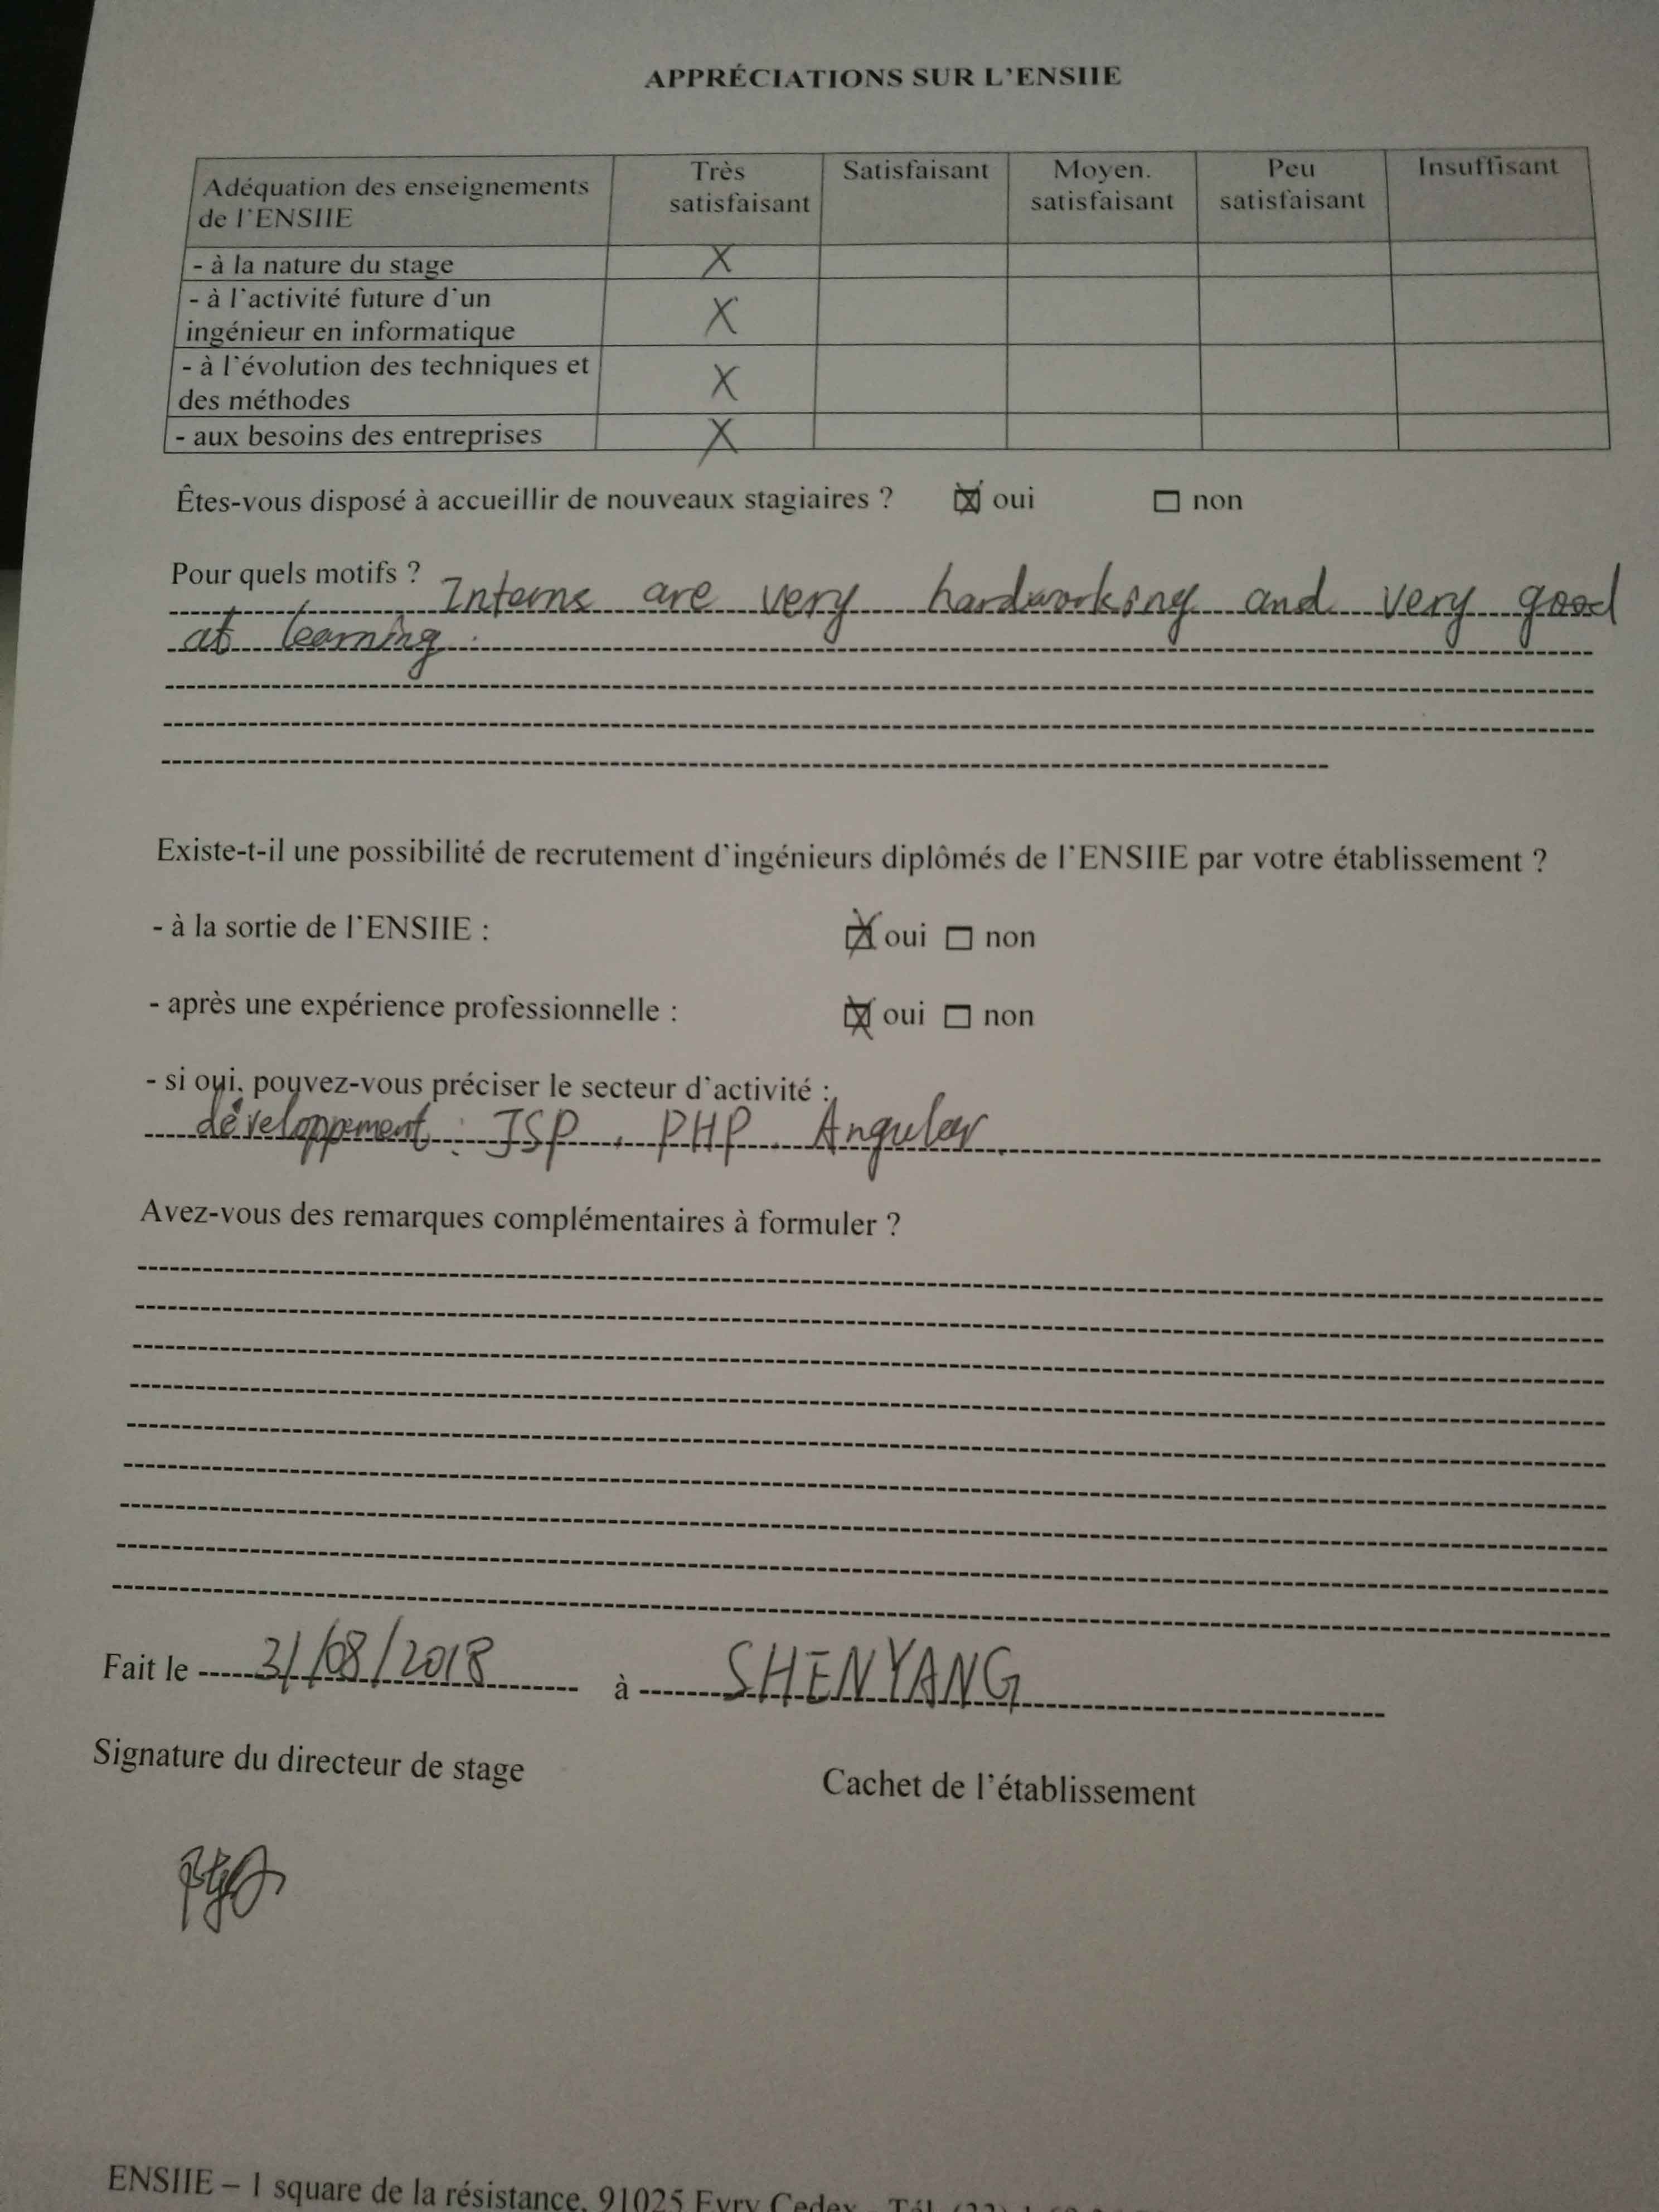 APPRÉCIATIONS SUR L'ENSIIE
Adéquation des enseignements de l'ENSIIE Très satisfaisant Satisfaisant Moyen. satisfaisant Peu satisfaisant Insuffisant
- à la nature du stage X
- à l'activité future d'un
ingénieur en informatique X
- à l'évolution des techniques et
des méthodes X
- aux besoins des entreprises X
Êtes-vous disposé à accueillir de nouveaux stagiaires ? ☒ oui ☐ non
Pour quels motifs ? Interns are very hardworking and very good
at learning.
Existe-t-il une possibilité de recrutement d'ingénieurs diplômés de l'ENSIIE par votre établissement ?
- à la sortie de l'ENSIIE : ☒ oui ☐ non
- après une expérience professionnelle : ☒ oui ☐ non
- si oui, pouvez-vous préciser le secteur d'activité :
développement : JSP, PHP, Angular.
Avez-vous des remarques complémentaires à formuler ?
Fait le 31/08/2018 à SHENYANG
Signature du directeur de stage
Cachet de l'établissement
ENSIIE – 1 square de la résistance, 91025 Evry Cedex - Tél.